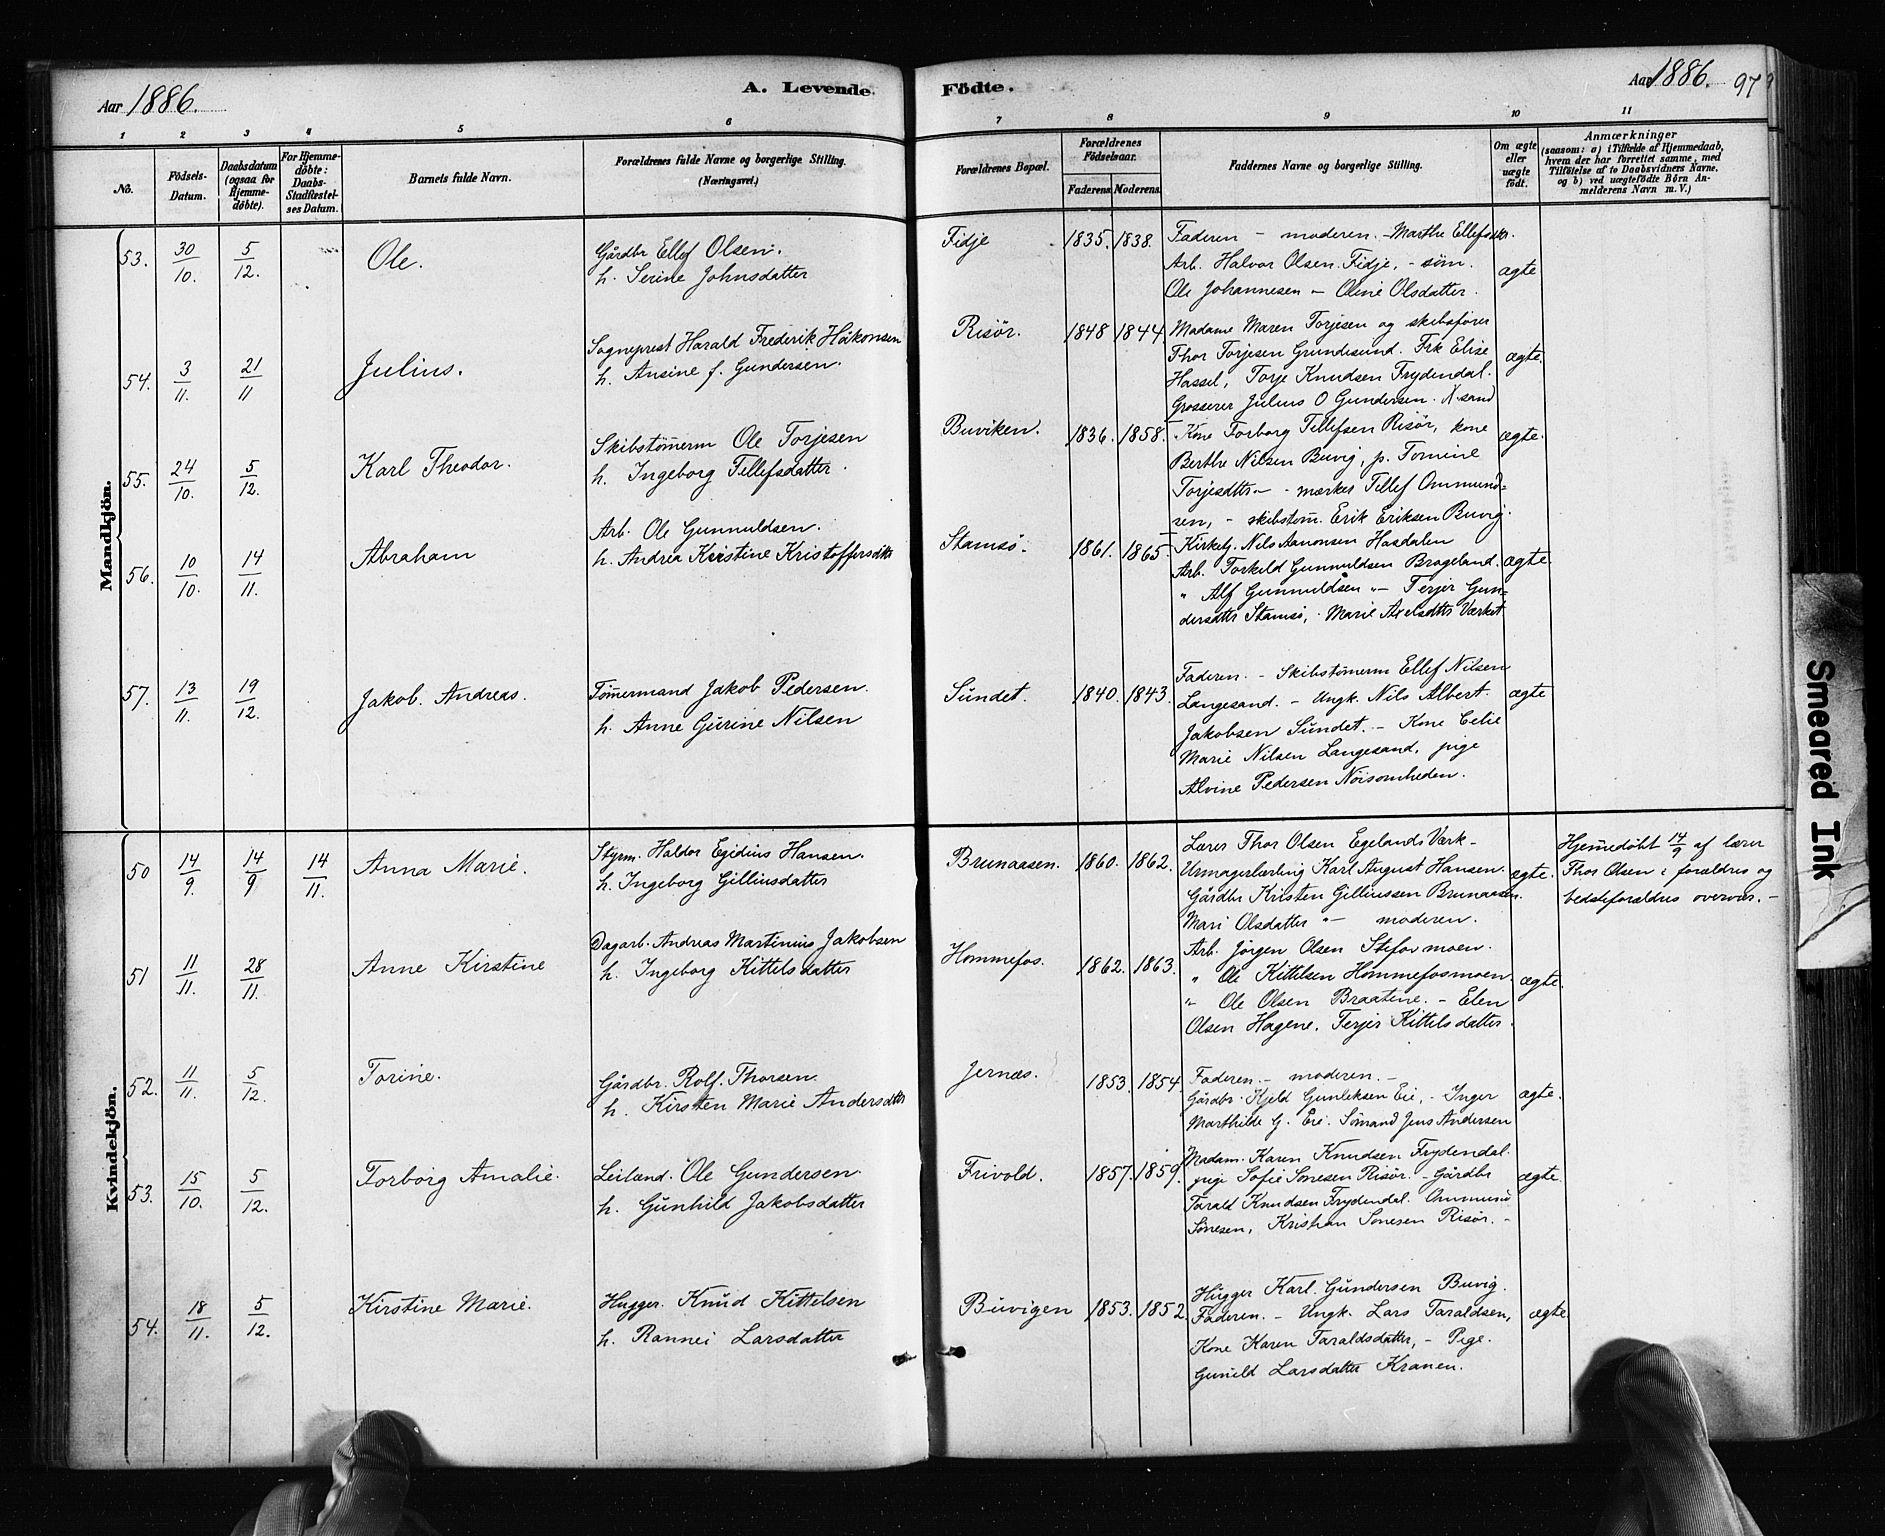 Aar 1886.
A. Levende Födte.
Aar 1886. 97
1 2 3 4 5 6 7 8 9 10 11
No.
Födsels-Datum.
Daabsdatum (ogsaa for Hjemme-döbte).
For Hjemme-döbte: Daabs-Stadfæstel-ses Datum.
Barnets fulde Navn.
Forældrenes fulde Navne og borgerlige Stilling. (Næringsvei.)
Forældrenes Bopæl.
Forældrenes Födselsaar.
Faderens Moderens.
Faddernes Navne og borgerlige Stilling.
Om ægte eller uægte födt.
Anmærkninger
(saasom: a) i Tilfælde af Hjemmedaab,
hvem der har forrettet samme, med
Tilföielse af to Daabsvidners Navne,
og b) ved uægtefödte Börn An-
melderens Navn m. V.)
Mandkjön.
53. 30/10. 5/12. Ole.
Gårdbr Ellef Olsen.
h. Serine Johnsdatter
Fidje 1835. 1838.
Faderen - moderen. - Marthe Ellefsdtr.
Arb. Halvor Olsen Fidje, - söm.
Ole Johannesen - Oline Olsdatter.
ægte
54. 3/11. 21/11 Julius.
Sogneprest Harald Frederik Håkonsen
h. Ansine f. Gundersen.
Risör. 1848 1844
Madame Maren Torjesen og skibsförer
Thor Torjesen Grundesund. Frk Elise
Hassel, Torje Knudsen Frydendal.
Grosserer Julius O Gundersen. Kr.sand
ægte
55. 24/10. 5/12. Karl Theodor.
Skibstömerm Ole Torjesen
h. Ingeborg Tellefsdatter.
Buviken. 1836. 1858.
Kone Torborg Tellefsen Risör, kone
Berthe Nilsen Buvig, p. Tomine
Torjesdtr - - mærkes Tellef Ommund=
sen, - skibstöm. Erik Eriksen Buvig.
ægte.
56. 10/10. 14/11. Abraham
Arb. Ole Gunnuldsen.
h. Andrea Kristine Kristoffersdtr
Stamsö. 1861. 1865.
Kirkelj. Nils Aanonsen Hasdalen
Arb. Torkild Gunnuldsen Brogeland.
" Alf Gunnuldsen "- Terjer Gun=
dersdtr Stamsö, Marie Axelsdtr Værket
ægte.
57. 13/11. 19/12. Jakob. Andreas.
Tömermand Jakob Pedersen.
h. Anne Gurine Nilsen
Sundet. 1840. 1843.
Faderen. - Skibstömerm Ellef Nilsen
Langesand. - Ungk. Nils Albert
Jakobsen Sundet. - Kone Celie
Marie Nilsen Langesand, pige
Alvine Pedersen Nöisomheden.
ægte
Kvindekjön.
50 14/9. 14/9 14/11. Anna Marie.
Styrm. Haldor Egidius Hansen.
h. Ingeborg Gilliusdatter
Brunaasen. 1860. 1862.
Lærer Thor Olsen Egelands Værk -
Urmagerlærling Karl August Hansen.
Gårdbr Kristen Gilliussen Brunaasen.
Mari Olsdatter "- moderen.
ægte.
Hjemmedöbt 14/9 af lærer
Thor Olsen i forældres og
bedsteforældres overvær. -
51 11/11. 28/11. Anne Kirstine
Dagarb. Andreas Martinius Jakobsen
h. Ingeborg Kittelsdatter
Hommefos. 1862. 1863.
Arb. Jörgen Olsen
" Ole Kittelsen Hommefosmoen.
" Ole Olsen Braatene. - Elen
Olsen Hagene. Terjer Kittelsdatter.
ægte.
52. 11/11. 5/12. Torine.
Gårdbr. Rolf. Thorsen.
h. Kirsten Marie Andersdtr
Jernæs. 1853. 1854.
Faderen. - moderen. -
Gårdbr. Kjeld Gunleksen Eie, - Inger
Marthilde G. Eie. Sömand Jens Andersen
ægte.
53. 15/10. 5/12. Torborg Amalie.
Leilænd. Ole Gundersen
h. Gunhild Jakobsdatter
Frivold. 1857. 1859.
Madam. Karen Knudsen Frydendal.
pige Sofie Sönesen Risör. - Gårdbr
Tarald Knudsen Frydendal. Ommund
Sönesen, Kristian Sönesen Risör. -
ægte
54. 18/11. 5/12. Kirstine Marie.
Hugger. Knud Kittelsen
h. Rannei Larsdatter
Buvigen 1853. 1852.
Hugger Karl Gundersen Buvig.
Faderen. - Ungk. Lars Taraldsen,
Kone Karen Taraldsdatter, - Pige.
Gunild Larsdatter Kranen.
ægte
Smeared Ink